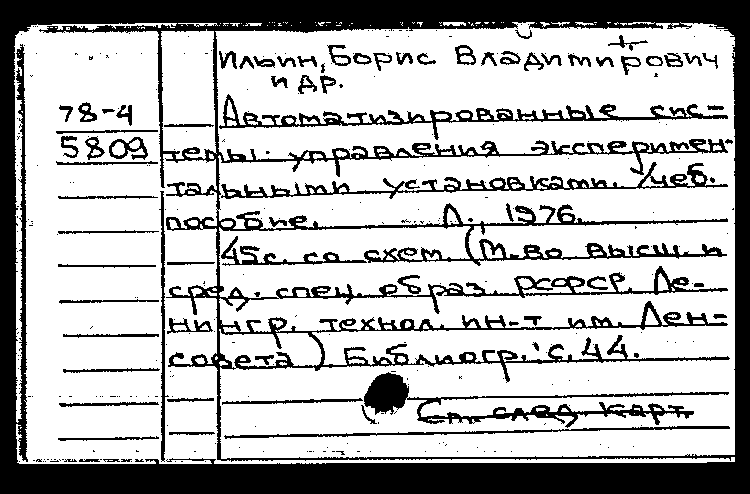 Ильин, Борис Владимирович
и др.
78-4 Автоматизированные сис-
5809 темы управления эксперимен-
тальными установками. Учеб.
пособие. Л., 1976.
45с. со схем. (М-во высш. и
сред. спец. образ. РСФСР. Ле-
нингр. технол. ин-т им. Лен-
совета). Библиогр.: с. 44.
См. след. карт.